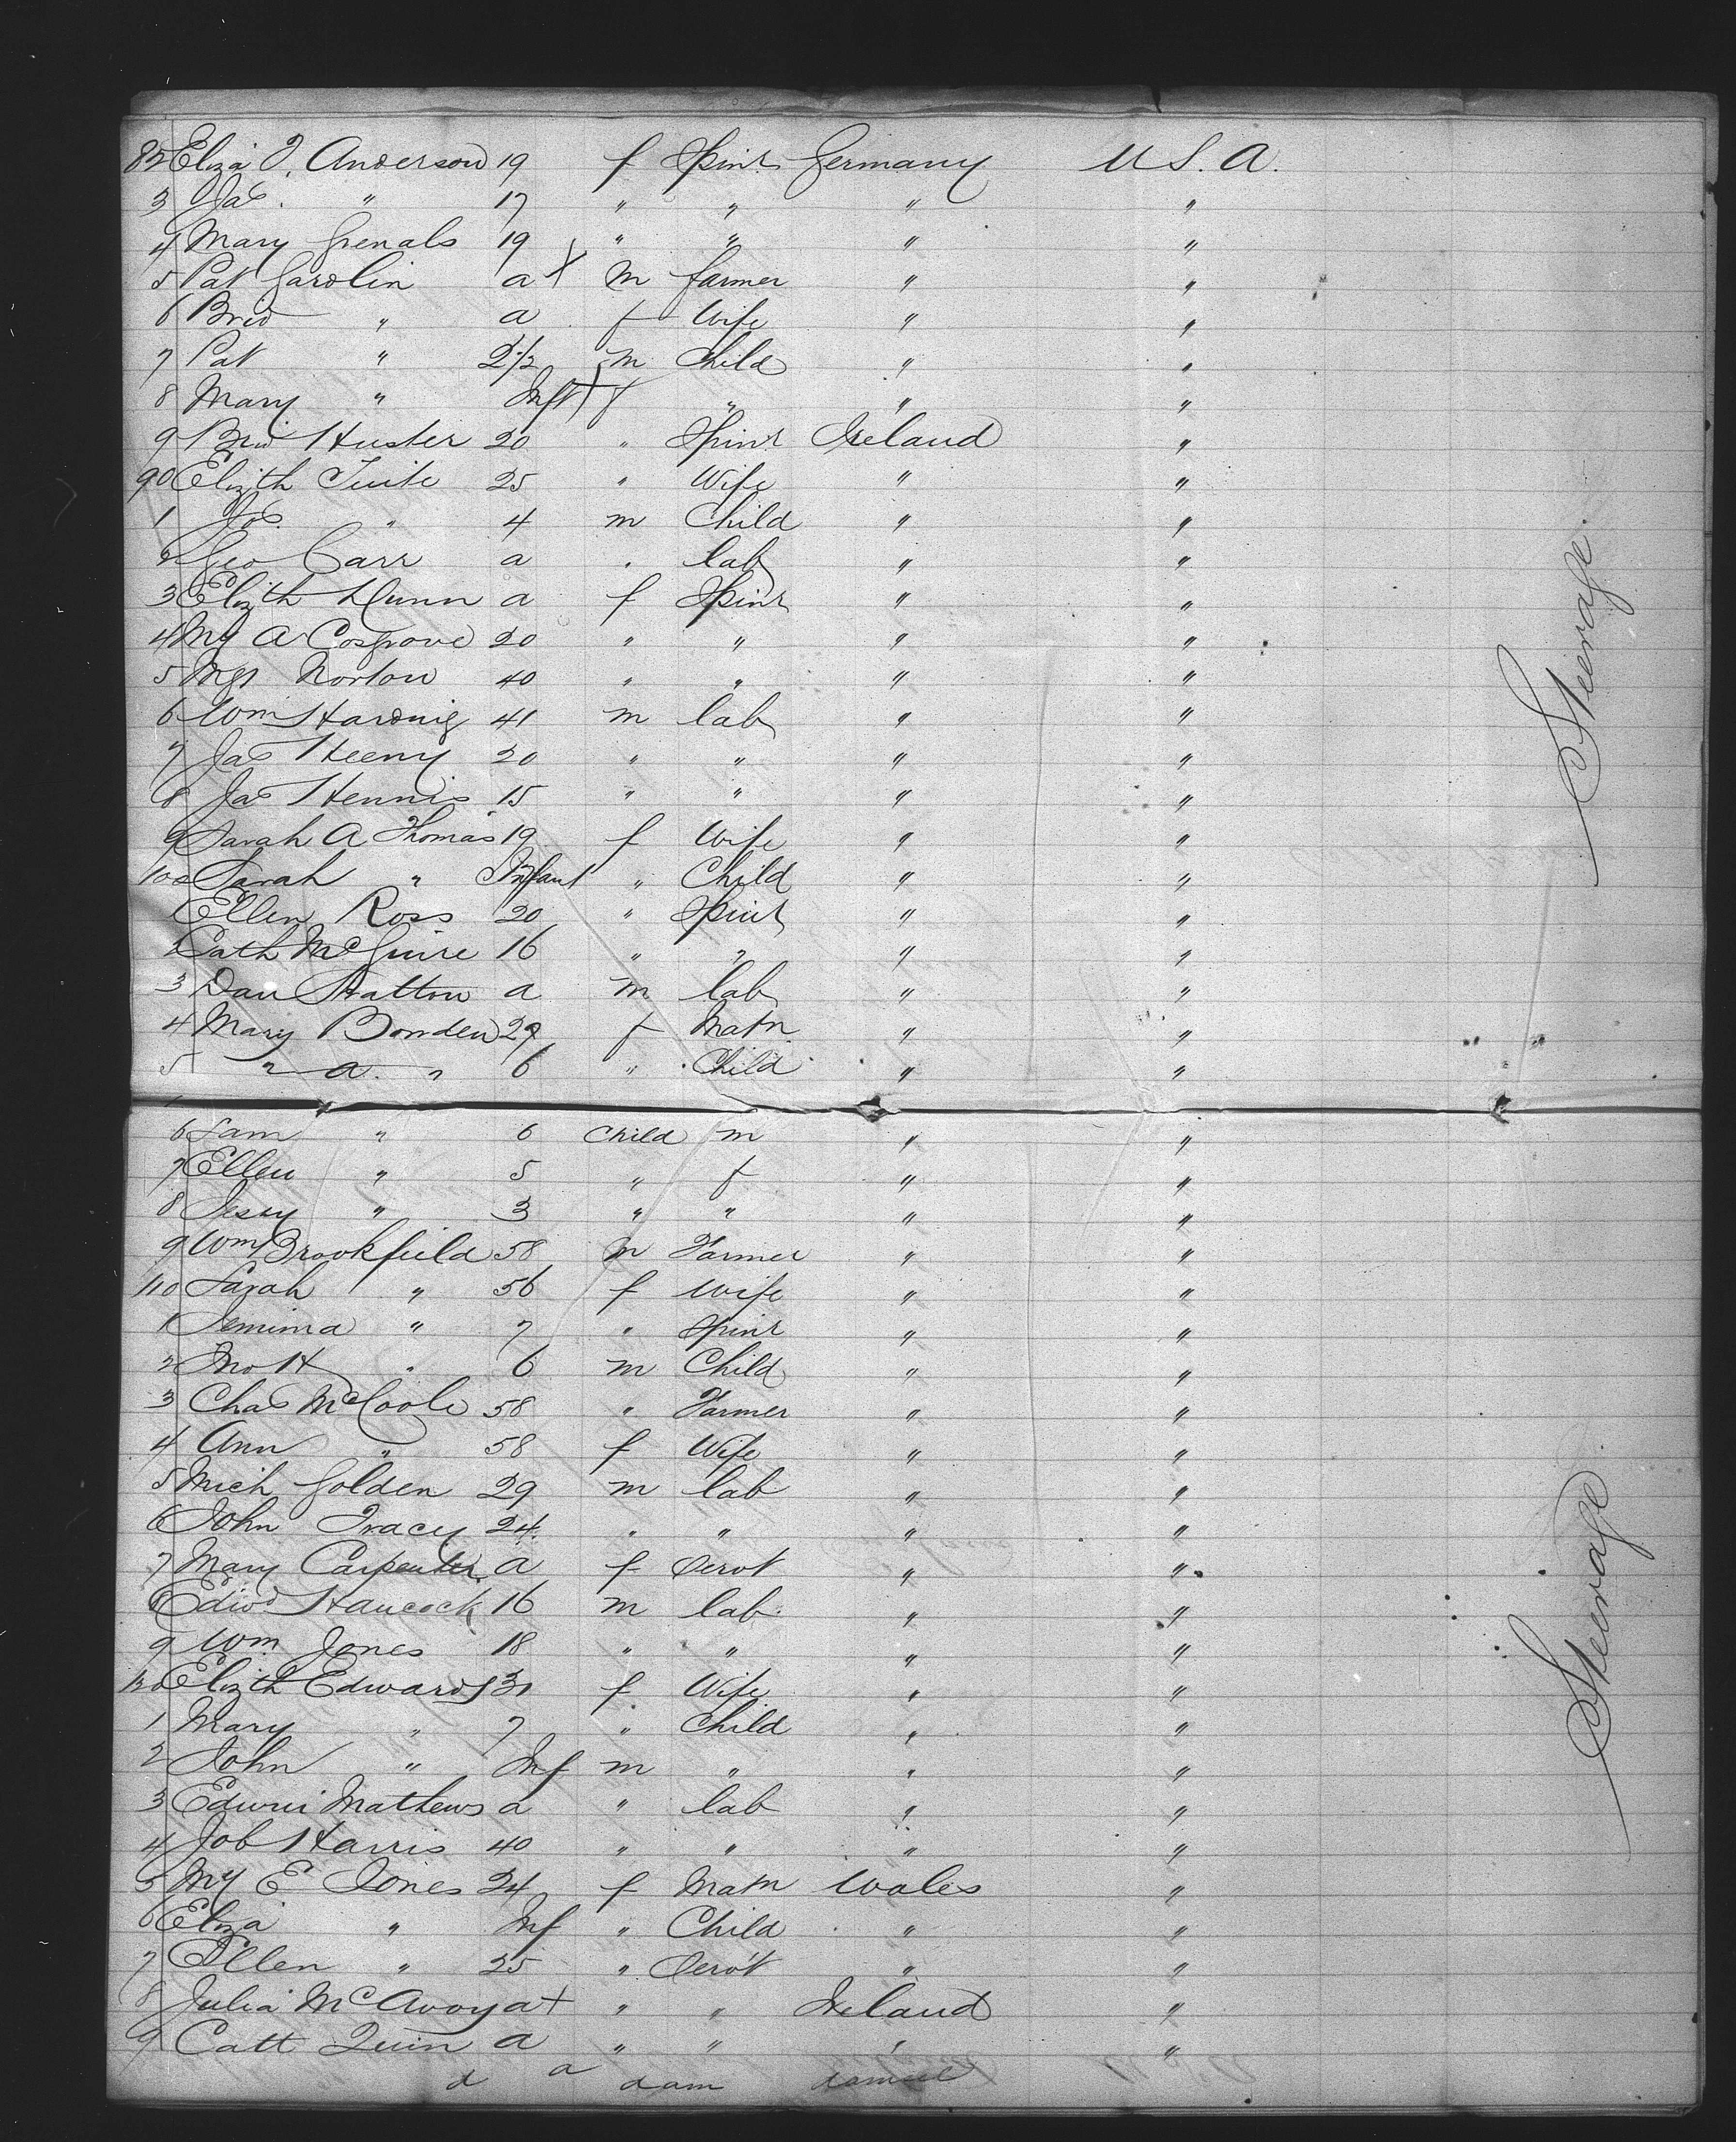 82 Eliza J. Anderson 19 f Spinr Germany U.S.A.
3 Jas. " 17 " " " "
4 Mary Grenals 19 " " " "
5 Pat Garolin a X m farmer " "
6 Brid " a f Wife " "
7 Pat " 2 1/2 m Child " "
8 Mary " Inft X f " " "
9 Brid Huster 20 " Spinr Ireland "
90 Elizth Tuite 25 " Wife " "
1 Jos. " 4 m Child " "
2 Geo Carr a " lab " "
3 Elizth Dunn a f Spinr " "
4 My A Cosgrove 20 " " " "
5 Mgt Norton 40 " " " "
6 Wm Harding 41 m lab " "
7 Jas Heeny 20 " " " "
8 Jas Hennis 15 " " " "
9 Sarah A Thomas 19 f Wife " "
100 Sarah " Infant " Child " "
1 Ellen Ross 20 " Spinr " "
2 Cath McGuire 16 " " " "
3 Dan Hatton a m lab " "
4 Mary Bowden 29 f Matn " "
5 " a. " 6 " Child " "
6 Sam " 6 Child m " "
7 Ellen " 5 " f " "
8 Jessy " 3 " " " "
9 Wm Brookfield 58 m Farmer " "
110 Sarah " 56 f Wife " "
1 Jemima " 7 " Spinr " "
2 Jno H " 6 m Child " "
3 Chas McCoole 58 " Farmer " "
4 Ann " 58 f Wife " "
5 Mich Golden 29 m lab " "
6 John Tracy 24 " " " "
7 Mary Carpenter a f Servt " "
8 Edwd Hancock 16 m lab " "
9 Wm Jones 18 " " " "
120 Elizth Edwards 31 f Wife " "
1 Mary " 7 " Child " "
2 John " Inf m " " "
3 Edwin Mathews a " lab " "
4 Job Harris 40 " " " "
5 My E Jones 24 f Matn Wales "
6 Eliza " Inf " Child " "
7 Ellen " 25 " Servt " "
8 Julia McAvoy a + " " Ireland "
9 Catt Quin a " " " "
d a dam
Steerage.
Steerage